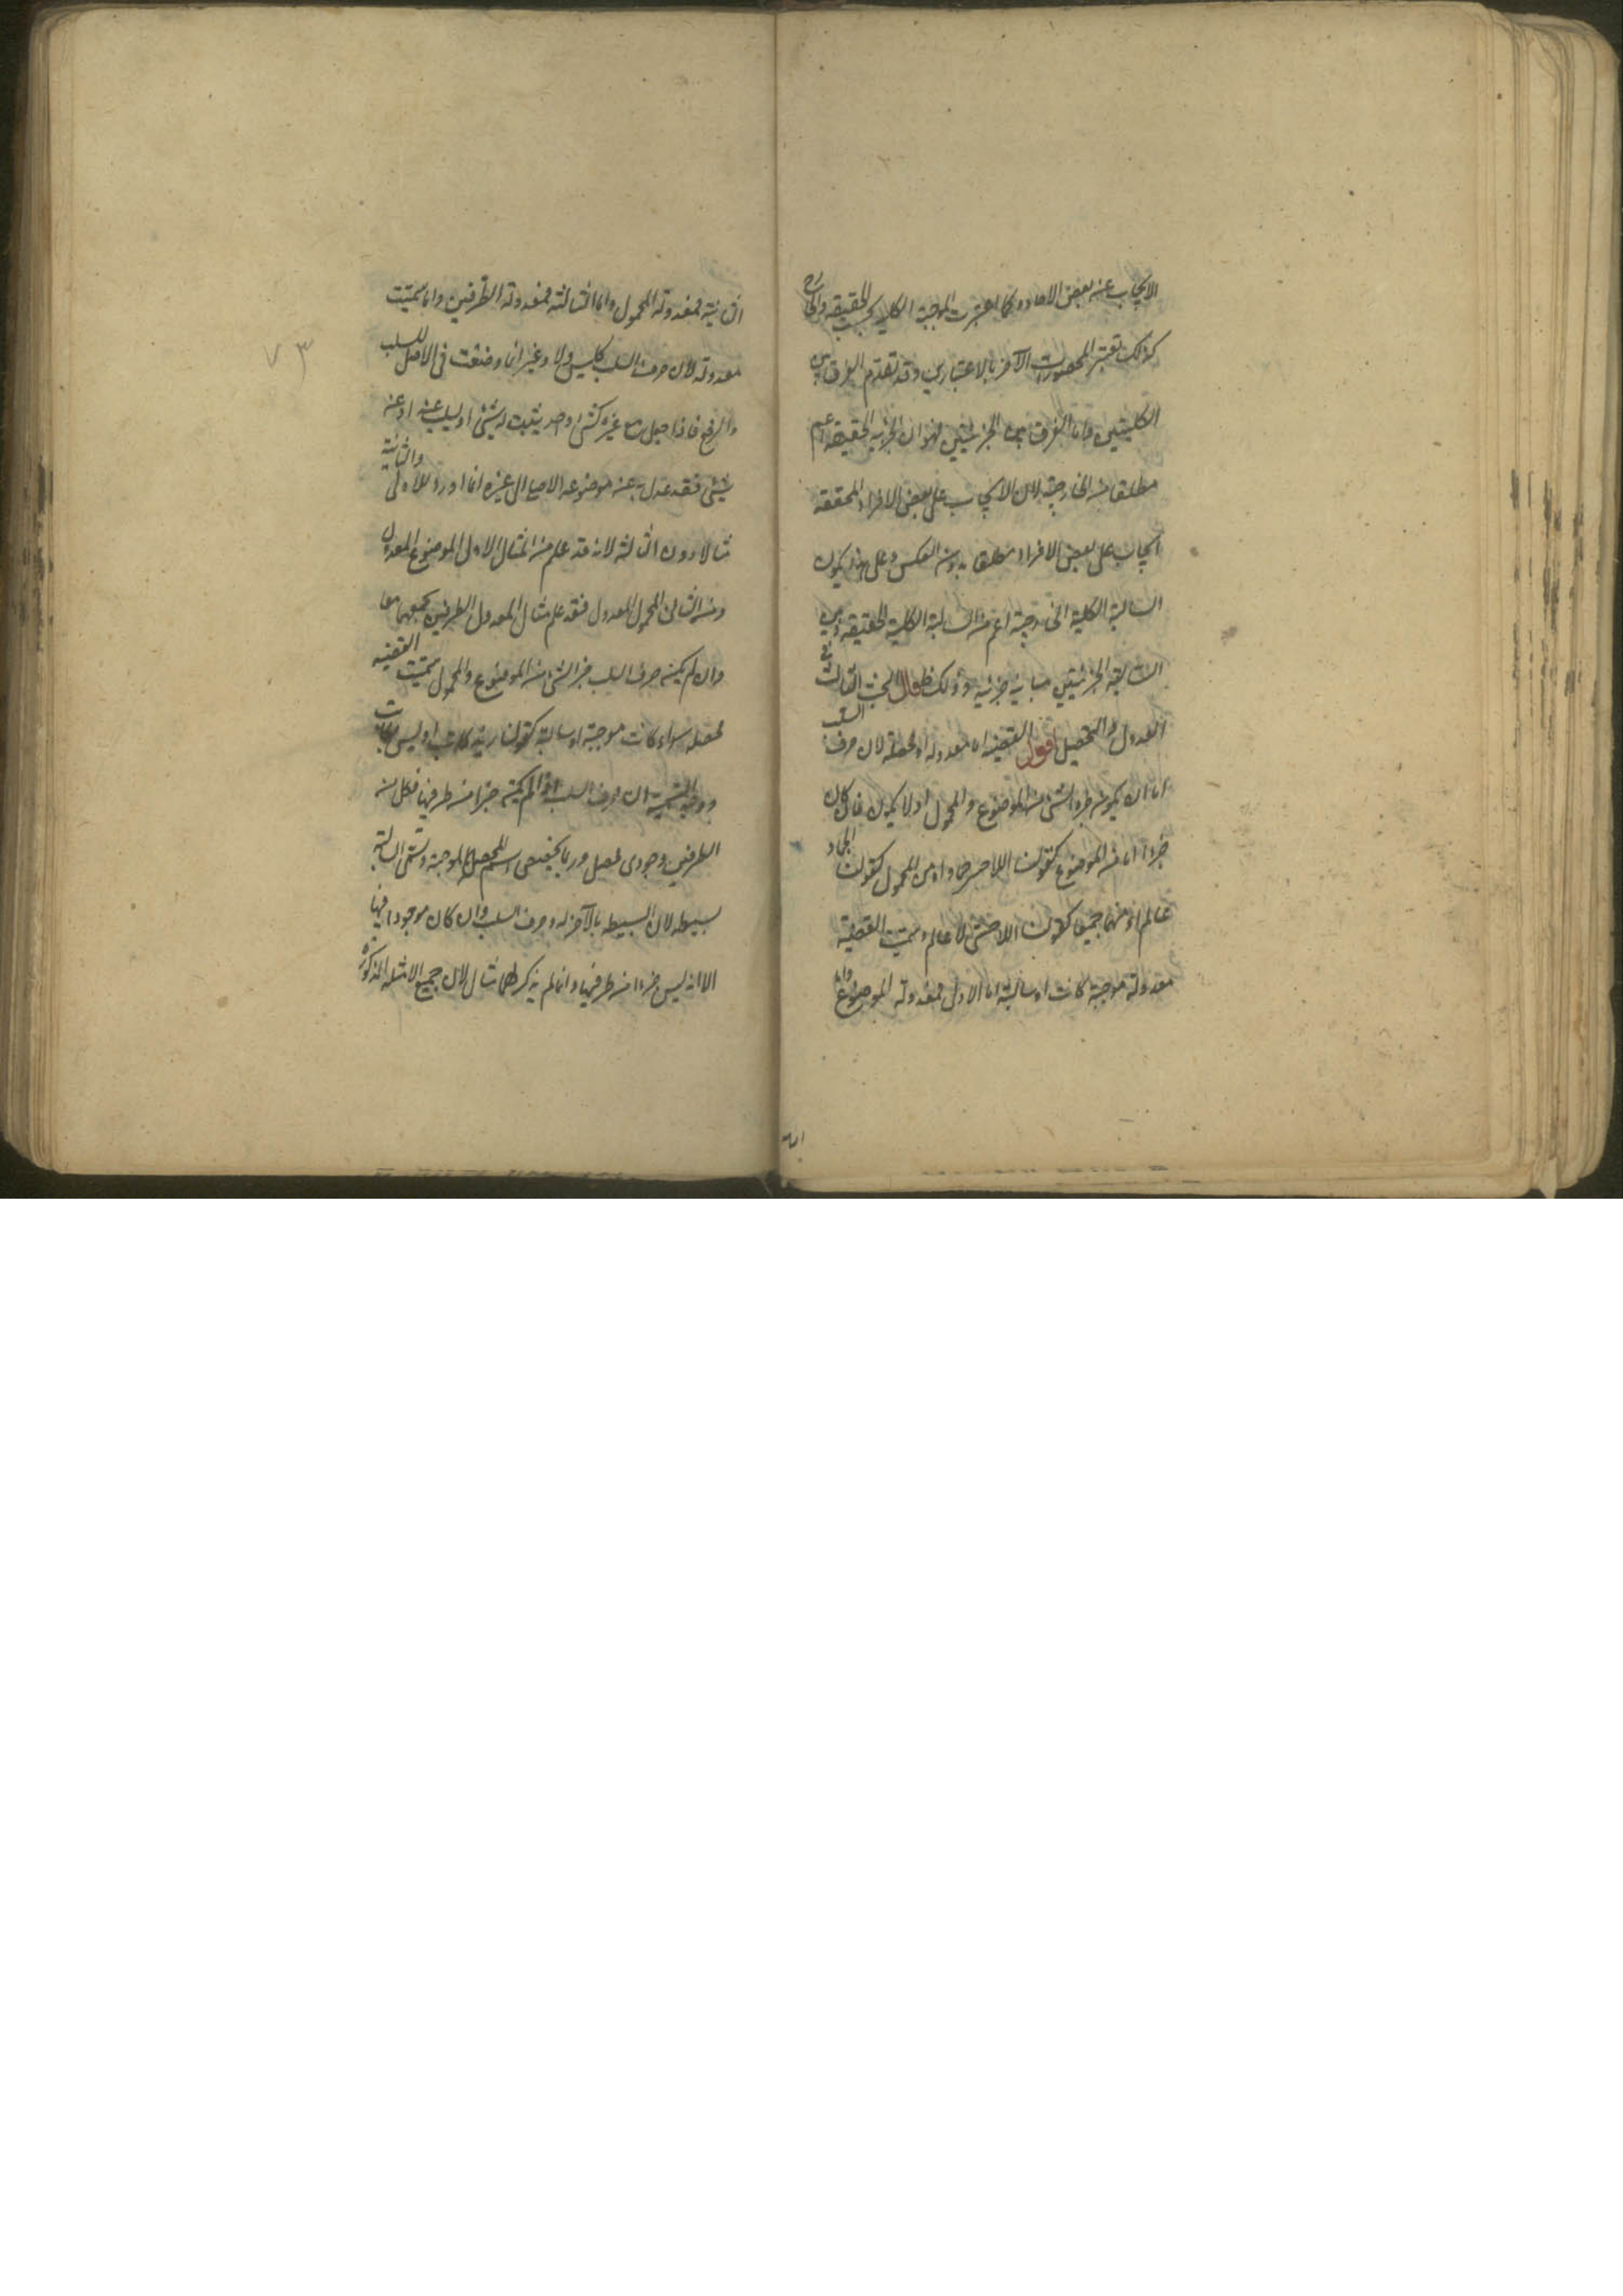 الايجاب عن بعض الاحاد وكما اعتبرت الموجبة الكلية بحسب الحقيقة والخارج
كذلك تعتبر المحصورات الآخر بالاعتبارين وقد تقدم الفرق بين
الكليتين واما الفرق بين الجزئيتين فهو ان الجزئية الحقيقة اعم
مطلقا من الخارجية لان الايجاب على بعض الافراد المحققة
ايجاب على بعض الافراد مطلقا بدون العكس وعلى هذا يكون
السالبة الكلية الخارجية اعم من السالبة الكلية الحقيقة وبين
السالبتين الجزئيتين مباينة جزئية وذلك ظ قال البحث الثالث في
العدول والتحصيل اقول القضية اما معدولة او محصلة لان حرف السلب
اما ان يكون جزءا لشئ من الموضوع والمحمول او لا يكون فان كان
جزءا اما من الموضوع كقولنا اللاحي جماد او من المحمول كقولنا الجماد
لا عالم او منهما جميعا كقولنا اللاحي لا عالم وسميت القضية
معدولة موجبة كانت او سالبة اما الاول فمعدولة الموضوع واما
الثانية فمعدولة المحمول واما الثالثة فمعدولة الطرفين وانما سميت
معدولة لان حرف السلب كليس ولا وغير انما وضعت في الاصل للسلب
والرفع فاذا جعل مع غيره كشئ واحد يثبت له شئ او يسلب عنه او عنه
شئ فقد عدل به عن موضوعه الاصلي الى غيره انما اورد للاولى والثانية
مثالا دون الثالثة لانه قد علم من المثال الاول الموضوع المعدول
ومن الثاني المحمول المعدول فقد علم مثال المعدول الطرفين بجمعهما معا
وان لم يكن حرف السلب جزءا لشئ من الموضوع والمحمول سميت القضية
محصلة سواء كانت موجبة او سالبة كقولنا زيد كاتب او ليس بكاتب
ووجه التسمية ان حرف السلب اذا لم يكن جزءا من طرفيها فكل من
الطرفين وجودي محصل وربما يخصص اسم المحصلة بالموجبة وتسمى السالبة
بسيطة لان البسيطة ما لا جزء له وحرف السلب وان كان موجودا فيها
الا انه ليس جزءا من طرفيها وانما لم يذكر لهما مثال لان جميع الامثلة المذكورة
٧٣